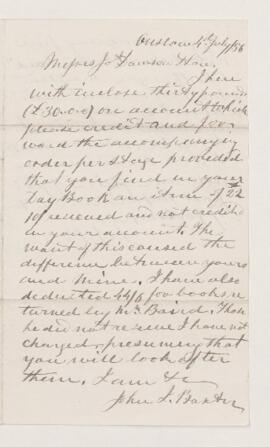 Onslow 4th July/56
Messrs J. Dawson & Son.
I here
with inclose thirty pounds
(£30.0.0) on account which
please credit and for
ward the accompanying
order per stage provided
that you find in your
day Book an item of £22
10/ received and not credited
in your account. The
want of this caused the
difference between yours
and mine. I have also
deducted 44/6 for books re
turned by Mr. Baird. Those
he did not receive I have not
charged, presuming that
you will look after
them. I am &c
John I. Baxter